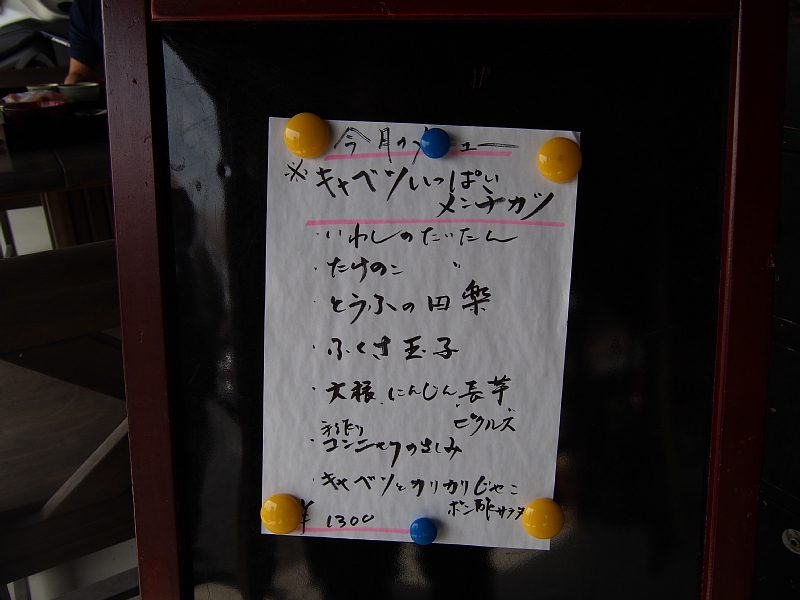 今月のメニュー
※キャベツいっぱい
メンチカツ
・いわしのだったん
・たけのこ 〃
・とうふの田楽
・ふくさ玉子
・大根、にんじん、長芋
ピクルス
・手作り
コンニャクのさしみ
・キャベツとカリカリじゃこ
ポン酢サラダ
¥1300